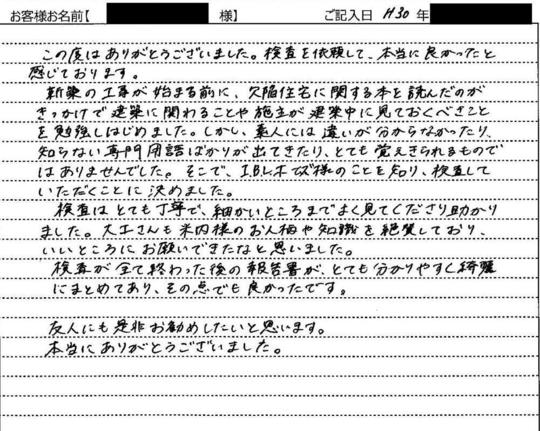 お客様お名前【 様】 ご記入日 H30 年
この度はありがとうございました。検査を依頼して、本当に良かったと
感じております。
新築の工事が始まる前に、欠陥住宅に関する本を読んだのが
きっかけで建築に関わることや施主が建築中に見ておくべきこと
を勉強しはじめました。しかし、素人には違いが分からなかったり、
知らない専門用語ばかりが出てきたり、とても覚えきられるもので
はありませんでした。そこで、IBレポですh様のことを知り、検査して
いただくことに決めました。
検査はとても丁寧で、細かいところまでよく見てくださり助かり
ました。大工さんも米内様のお人柄や知識を絶賛しており、
いいところにお願いできたなと思いました。
検査が全て終わった後の報告書が、とても分かりやすく綺麗
にまとめてあり、その点でも良かったです。
友人にも是非お勧めしたいと思います。
本当にありがとうございました。